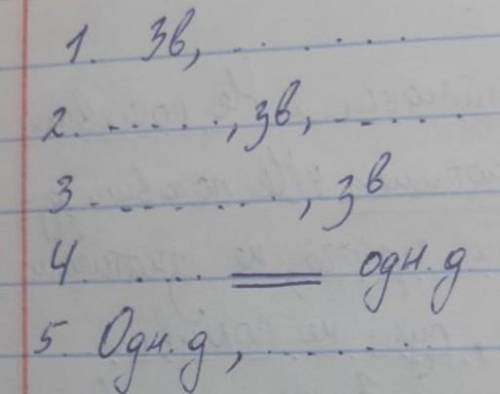 1. Зв, . . . . . . .
2. . . . . . . , зв, . . . . . .
3. . . . . . . . . , зв
4. . . . . ═══ одн. д
5. Одн. д, . . . . . . .